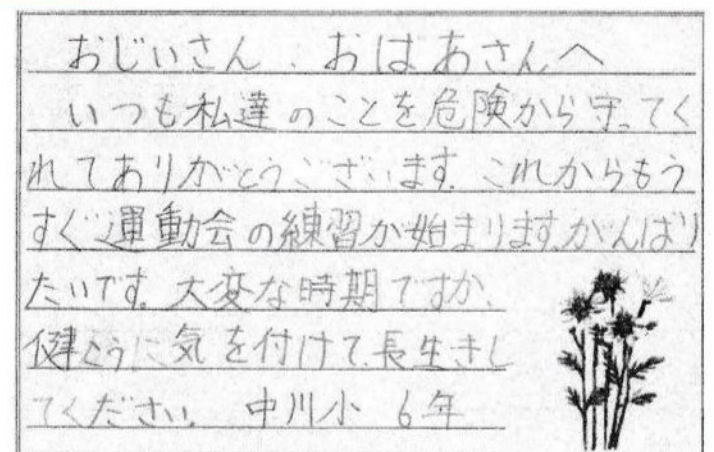 おじいさん、おばあさんへ
いつも私達のことを危険から守ってく
れてありがとうございます。これからもう
すぐ運動会の練習が始まります。がんばり
たいです。大変な時期ですが、
健こうに気を付けて、長生きし
てください。 中川小 6年